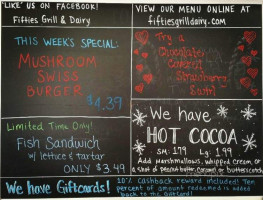 "LIKE" US ON FACEBOOK!
Fifties Grill & Dairy
THIS WEEK'S SPECIAL:
MUSHROOM
SWISS
BURGER
$4.39
Limited Time Only!
Fish Sandwich
w/ lettuce & tartar
ONLY $3.49
VIEW OUR MENU ONLINE AT
fiftiesgrilldairy.com
Try a
Chocolate
Covered
Strawberry
We have
HOT COCOA
SM: 1.79 Lg: 1.99
Add marshmallows, whipped cream, or
a shot of peanut butter, caramel, or butterscotch
We have Giftcards!
10% Cashback reward included! Ten
percent of amount redeemed is added
back to the giftcard!